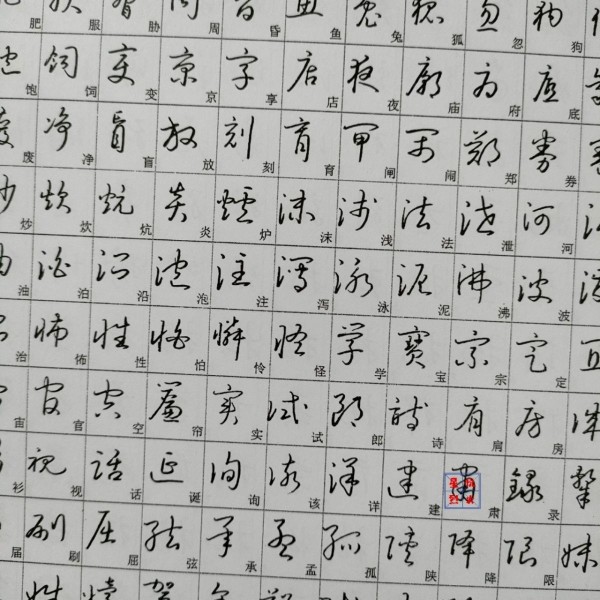 肥 服 胁 周 昏 鱼 兔 狐 忽 狗
饱 饲 变 京 享 店 夜 庙 府 底
废 净 盲 放 刻 育 闸 闹 郑 券
炒 炊 炕 炎 炉 沫 浅 法 泄 河
油 泊 沿 泡 注 泻 泳 泥 沸 波
治 怖 性 怕 怜 怪 学 宝 宗 定
宙 官 空 帘 实 试 郎 诗 肩 房
衫 视 话 诞 询 该 详 建 肃 录
届 刷 屈 弦 承 孟 孤 陕 降 限